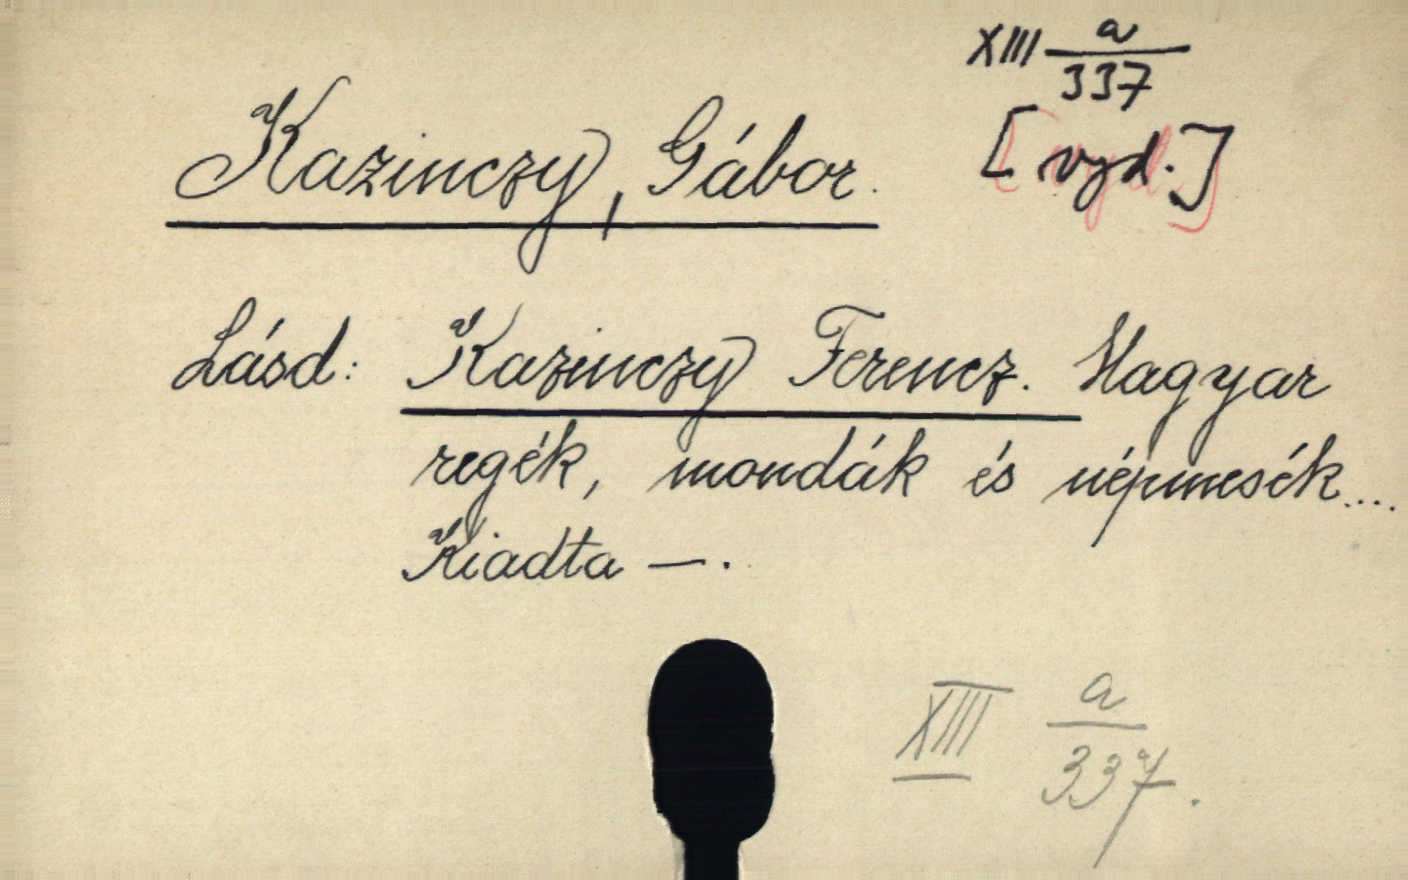 XIII a/337
Kazinczy, Gábor.
[vyd.]
Lásd: Kazinczy Ferencz. Magyar
regék, mondák és népmesék....
Kiadta —.
XIII a/337.